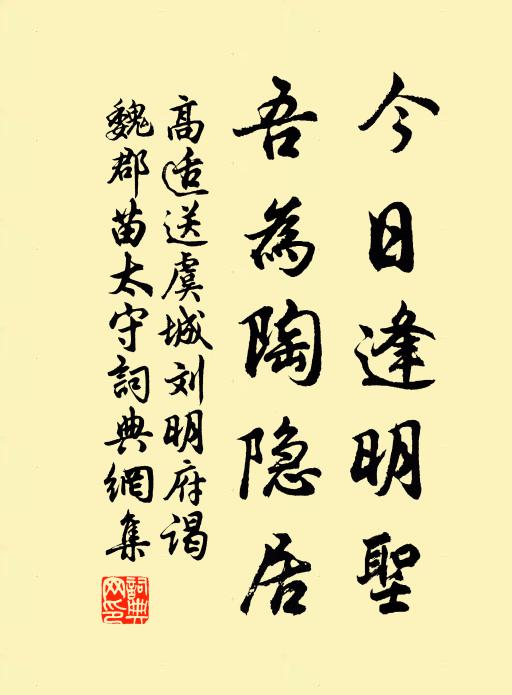 今日逢明聖
吾為陶隐居
高适送虞城刘明府谒
魏郡苗太守詞典網集
詞典網印